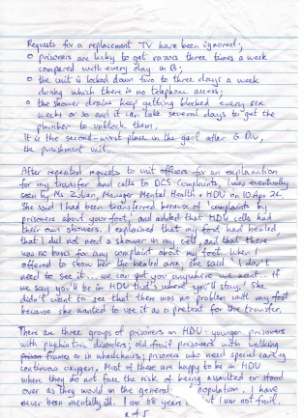 Requests for a replacement TV have been ignored;
o prisoners are lucky to get razors three times a week
compared with every day in B;
o the unit is locked down two to three days a week
during which there is no telephone access;
o the shower drains keep getting blocked every six
weeks or so and it can take several days to get the
plumber to unblock them.
It is the second-worst place in the gaol after G Div,
the punishment unit.
After repeated requests to visit officers for an explanation
for my transfer and calls to DCS Complaints, I was eventually
seen by Ms Manager Mental Health & HDU on 10 Apr
She said I had been transferred because of 'complaints by
prisoners about your foot', and added that HDU cells had
their own showers. I explained that my foot had healed
that I did not need a shower in my cell, and that there
was no basis for any complaint about my foot. When I
offered to show her the healed area, she said 'I don't
need to see it... we can put you anywhere we want. If
we say you'll be in HDU that's where you'll stay.' She
didn't want to see that there was no problem with my foot
because she wanted to use it as a pretext for the transfer.
There are three groups of prisoners in HDU: younger prisoners
with psychiatric disorders; old frail prisoners with walking
frames or in wheelchairs; prisoners who need special care eg
continuous oxygen. Most of these are happy to be in HDU
where they do not face the risk of being assaulted or stood
over as they would in the general population. I have
never been mentally ill. I am 68 years but I am not frail.
4 of 5